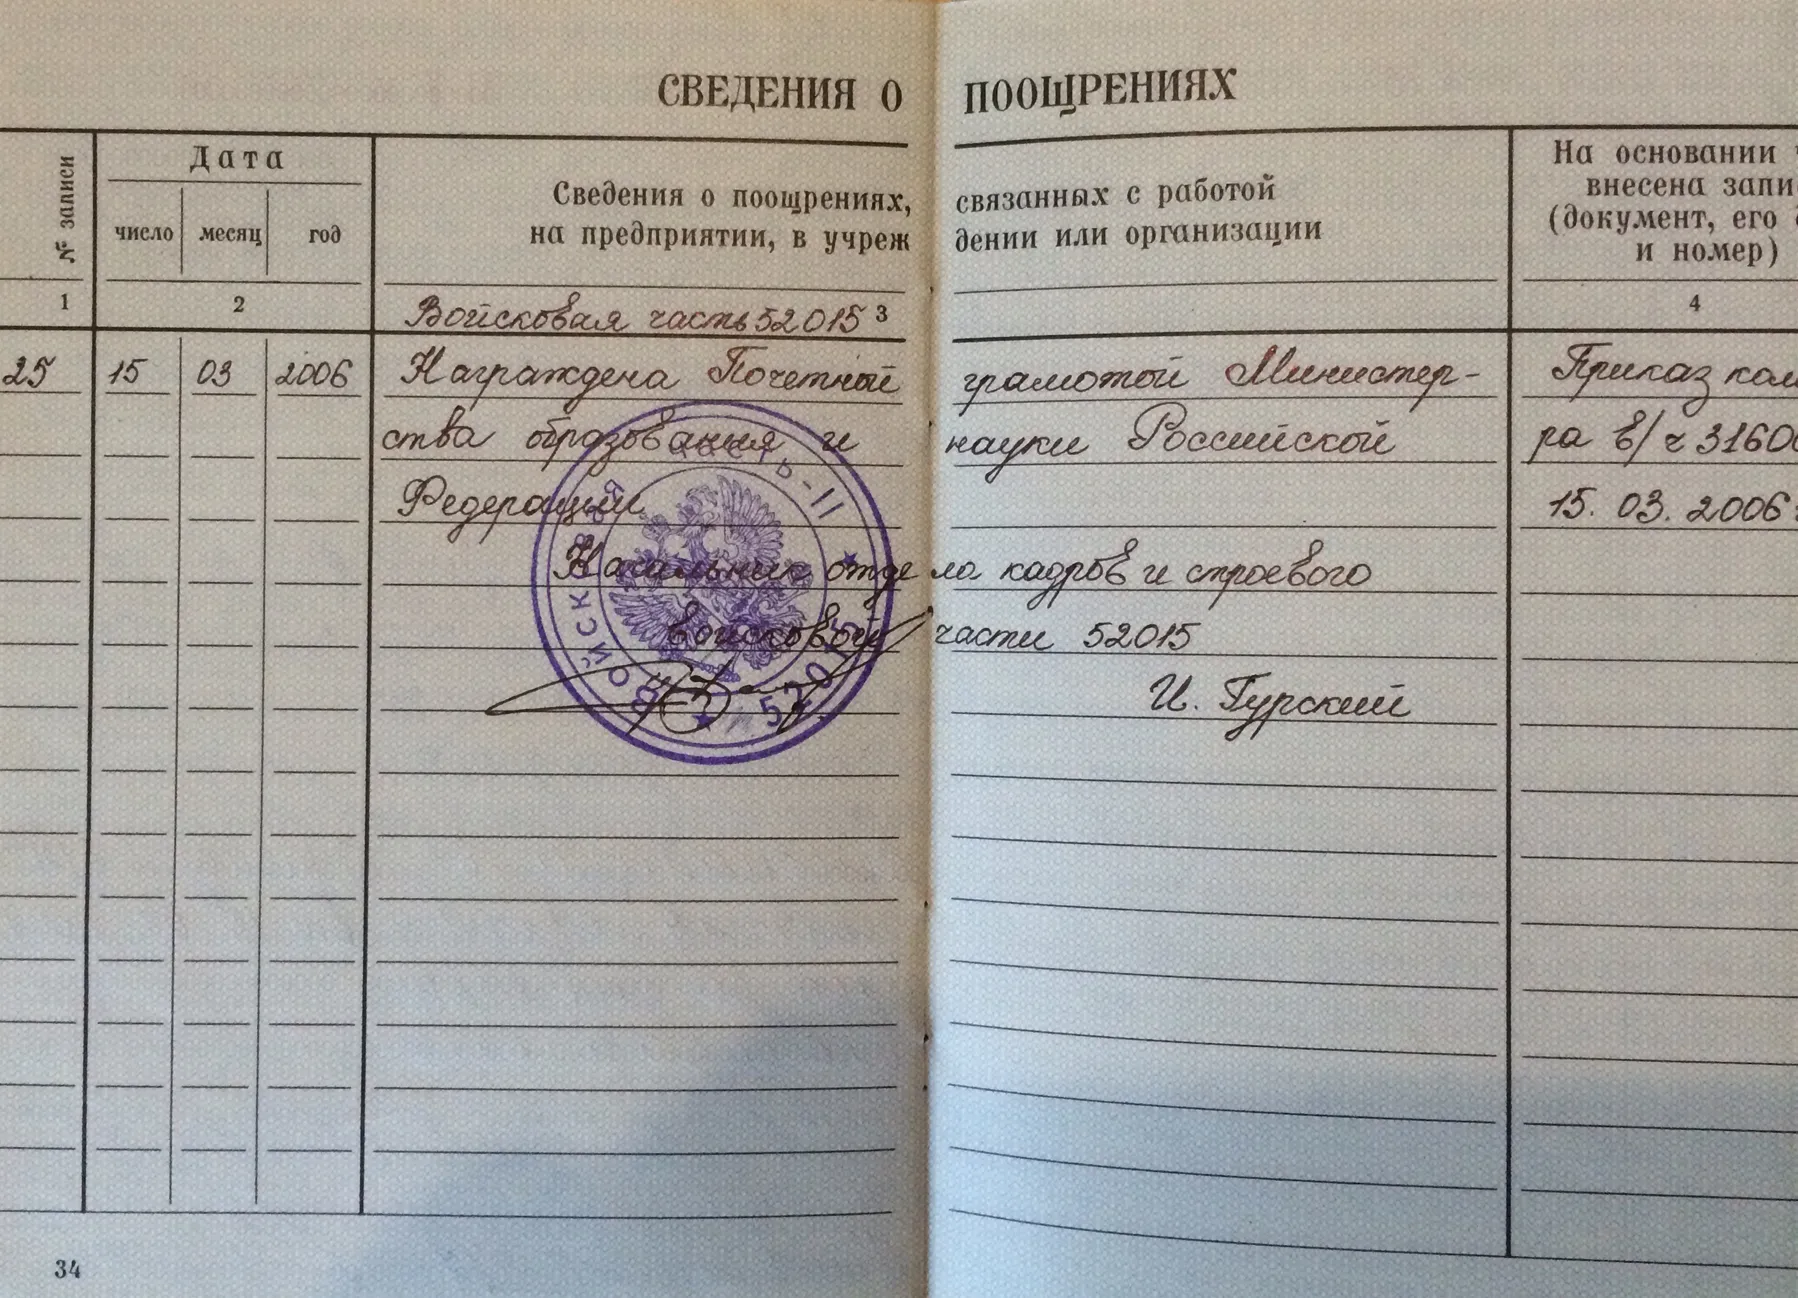 СВЕДЕНИЯ О ПООЩРЕНИЯХ
№ записи
Дата
число месяц год
Сведения о поощрениях, связанных с работой
на предприятии, в учреждении или организации
На основании
внесена запи
(документ, его
и номер)
1 2 3 4
Войсковая часть 52015
25 15 03 2006 Награждена Почетной грамотой Министер- Приказ ком
ства образования и науки Российской ра в/ч 3160
Федерации 15. 03. 2006 г
Начальник отдела кадров и строевого
войсковой части 52015
И. Гурский
ВОЙСКОВАЯ ЧАСТЬ-II
52015
34